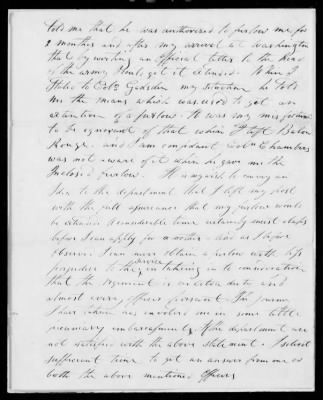 told me that he was authorised to furlow me for
2 months and after my arrival at Washington
that by writing an official letter to the head
of the army I could get it extended. When I
stated to Col. Gadsden my situation he told
me the means which was used to get an
extention of a furlow. It was my misfortune
to be ignorant of that when I left Baton
Rouge. and I am confidant Col. Chambers
was not aware of it when he gave me the
inclosed furlow. I wish to convey an
Idea to the department that I left my post
with the full assurance that my furlow would
be extended. Considerable time must elapse
before I can apply for another. and as I before
observe. I can never obtain a furlow with less
prejudice to the service taking in to consideration
that the regiment is on extra duty and
almost every officer present. The journey
I have taken has involved me in some little
pecuniary embarrassments. If the department are
not satisfied with the above statement. I solicit
sufficient time to get an answer from one or
both the above mentioned officers